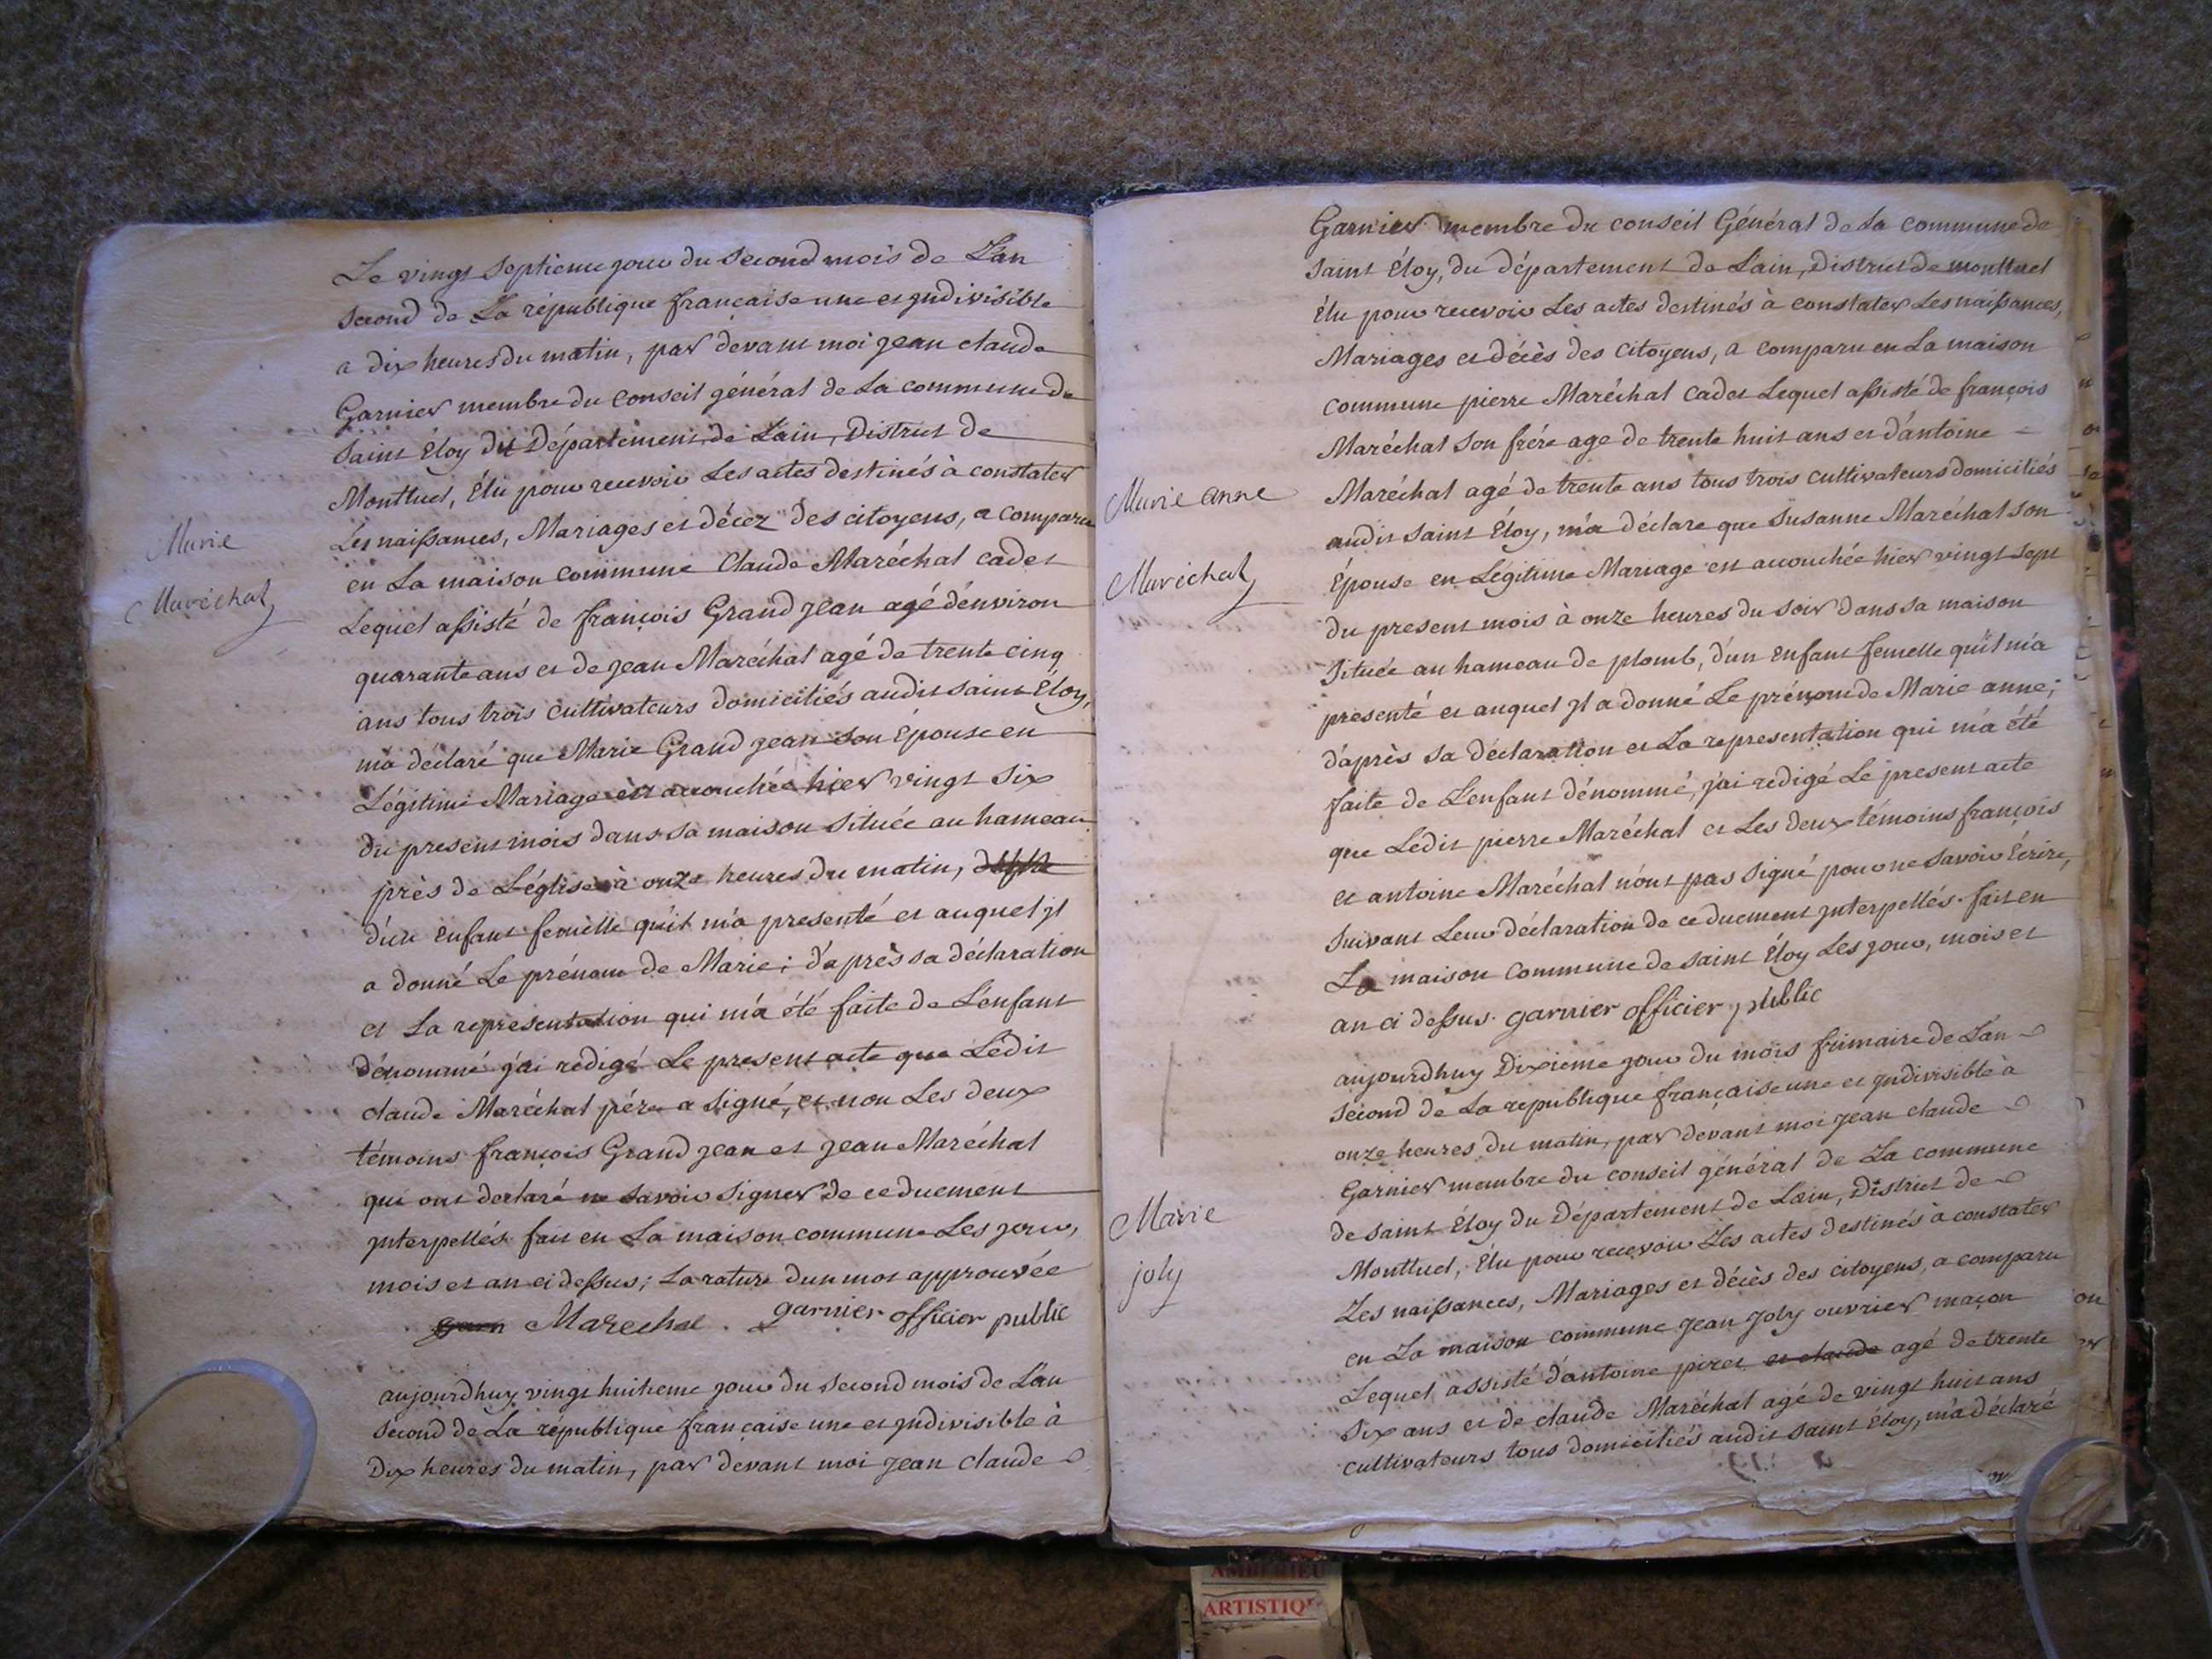 Le vingt septieme jour du second mois de L'an
second de La république française une et jndivisible
a dix heures du matin, par devant moi jean claude
Garnier membre du conseil général de La commune de
Saint Éloy du Département de L'ain, District de
Montluel, Élu pour recevoir Les actes destinés à constater
Les naissances, Mariages et décez des citoyens, a comparu
en La maison commune Claude Maréchal cadet
Marie
Maréchal
Lequel assisté de françois Grand jean agé d'environ
quarante ans et de jean Maréchal agé de trente cinq
ans tous trois cultivateurs domiciliés audit saint Éloy,
m'a déclaré que Marie Grand jean son Épouse en
Légitime Mariage est accouchée hier vingt six
du present mois dans sa maison située au hameau
près de L'église à onze heures du matin,
d'un enfant femelle qu'il m'a presenté et auquel jl
a donné Le prénom de Marie; d'après sa déclaration
et La representation qui m'a été faite de L'enfant
dénommé j'ai redigé Le present acte que Ledit
claude Maréchal pére a signé, et non Les deux
témoins françois Grand jean et jean Maréchal
qui ont declaré ne savoir signer de ce duement
jnterpellés fait en La maison commune Les jour,
mois et an ci dessus; La rature d'un mot approuvée
garn Marechal . garnier officier public
aujourdhuy vingt huitieme jour du second mois de L'an
second de La république française une et jndivisible à
Dix heures du matin, par devant moi jean claude
Garnier membre du conseil Général de La commune de
saint Éloy, du département de L'ain, District de montluel
Élu pour recevoir Les actes destinés à constater Les naissances,
Mariages et décès des citoyens, a comparu en La maison
commune pierre Maréchal cadet Lequel assisté de françois
Maréchal son frére age de trente huit ans et d'antoine
Marie anne
Maréchal
Maréchal agé de trente ans tous trois cultivateurs domiciliés
audit saint Éloy, m'a déclare que susanne Maréchal son
Épouse en Légitime Mariage est accouchée hier vingt sept
du present mois à onze heures du soir dans sa maison
située au hameau de plomb, d'un enfant femelle qu'il m'a
presenté et auquel jl a donné Le prénom de Marie anne;
d'après sa déclaration et La representation qui m'a été
faite de L'enfant dénommé, j'ai redigé Le present acte
que Ledit pierre Maréchal et Les deux témoins françois
et antoine Maréchal n'ont pas signé pour ne savoir Écrire,
suivant Leur déclaration de ce duement jnterpellés. fait en
La maison commune de saint Éloy Les jour, mois et
an ci dessus. garnier officier public
aujourdhuy Dixieme jour du mois frimaire de L'an
second de La republique française une et jndivisible à
onze heures du matin, par devant moi jean claude
Garnier membre du conseil général de La commune
de saint Éloy du Département de L'ain, District de
Marie
joly
Montluel, Élu pour recevoir Les actes destinés à constater
Les naissances, Mariages et décès des citoyens, a comparu
en La maison commune jean joly ouvrier maçon
Lequel assisté d'antoine piret et claude agé de trente
six ans et de claude Maréchal agé de vingt huit ans
cultivateurs tous domiciliés audit saint Éloy, m'a déclaré
AMBERIEU
ARTISTIQ